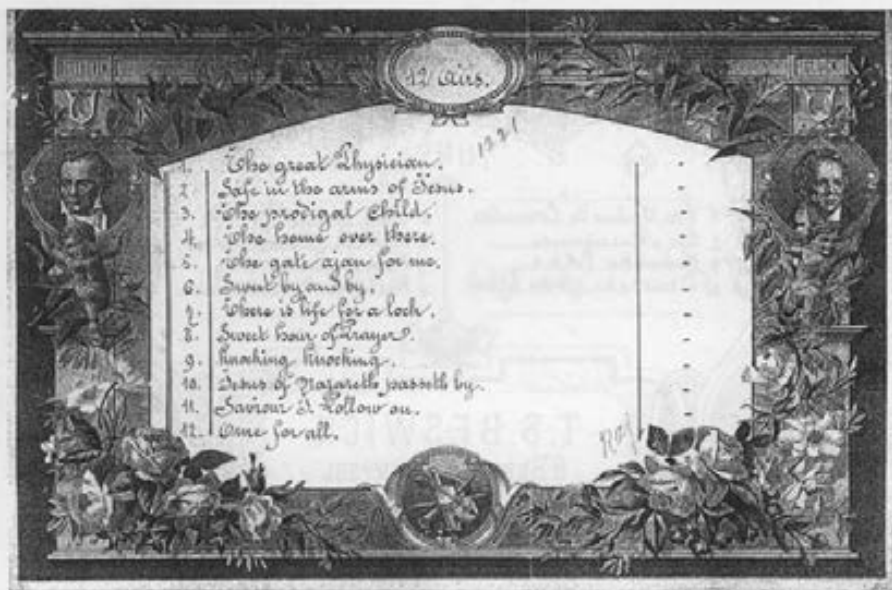 12 Airs.
1221
1. The great Physician.
2. Safe in the arms of Jesus.
3. The prodigal Child.
4. The home over there.
5. The gate ajar for me.
6. Sweet by and by.
7. There is life for a look.
8. Sweet hour of Prayer.
9. Knocking Knocking.
10. Jesus of Nazareth passeth by.
11. Saviour I follow on.
12. Once for all.
T.S.BESWI